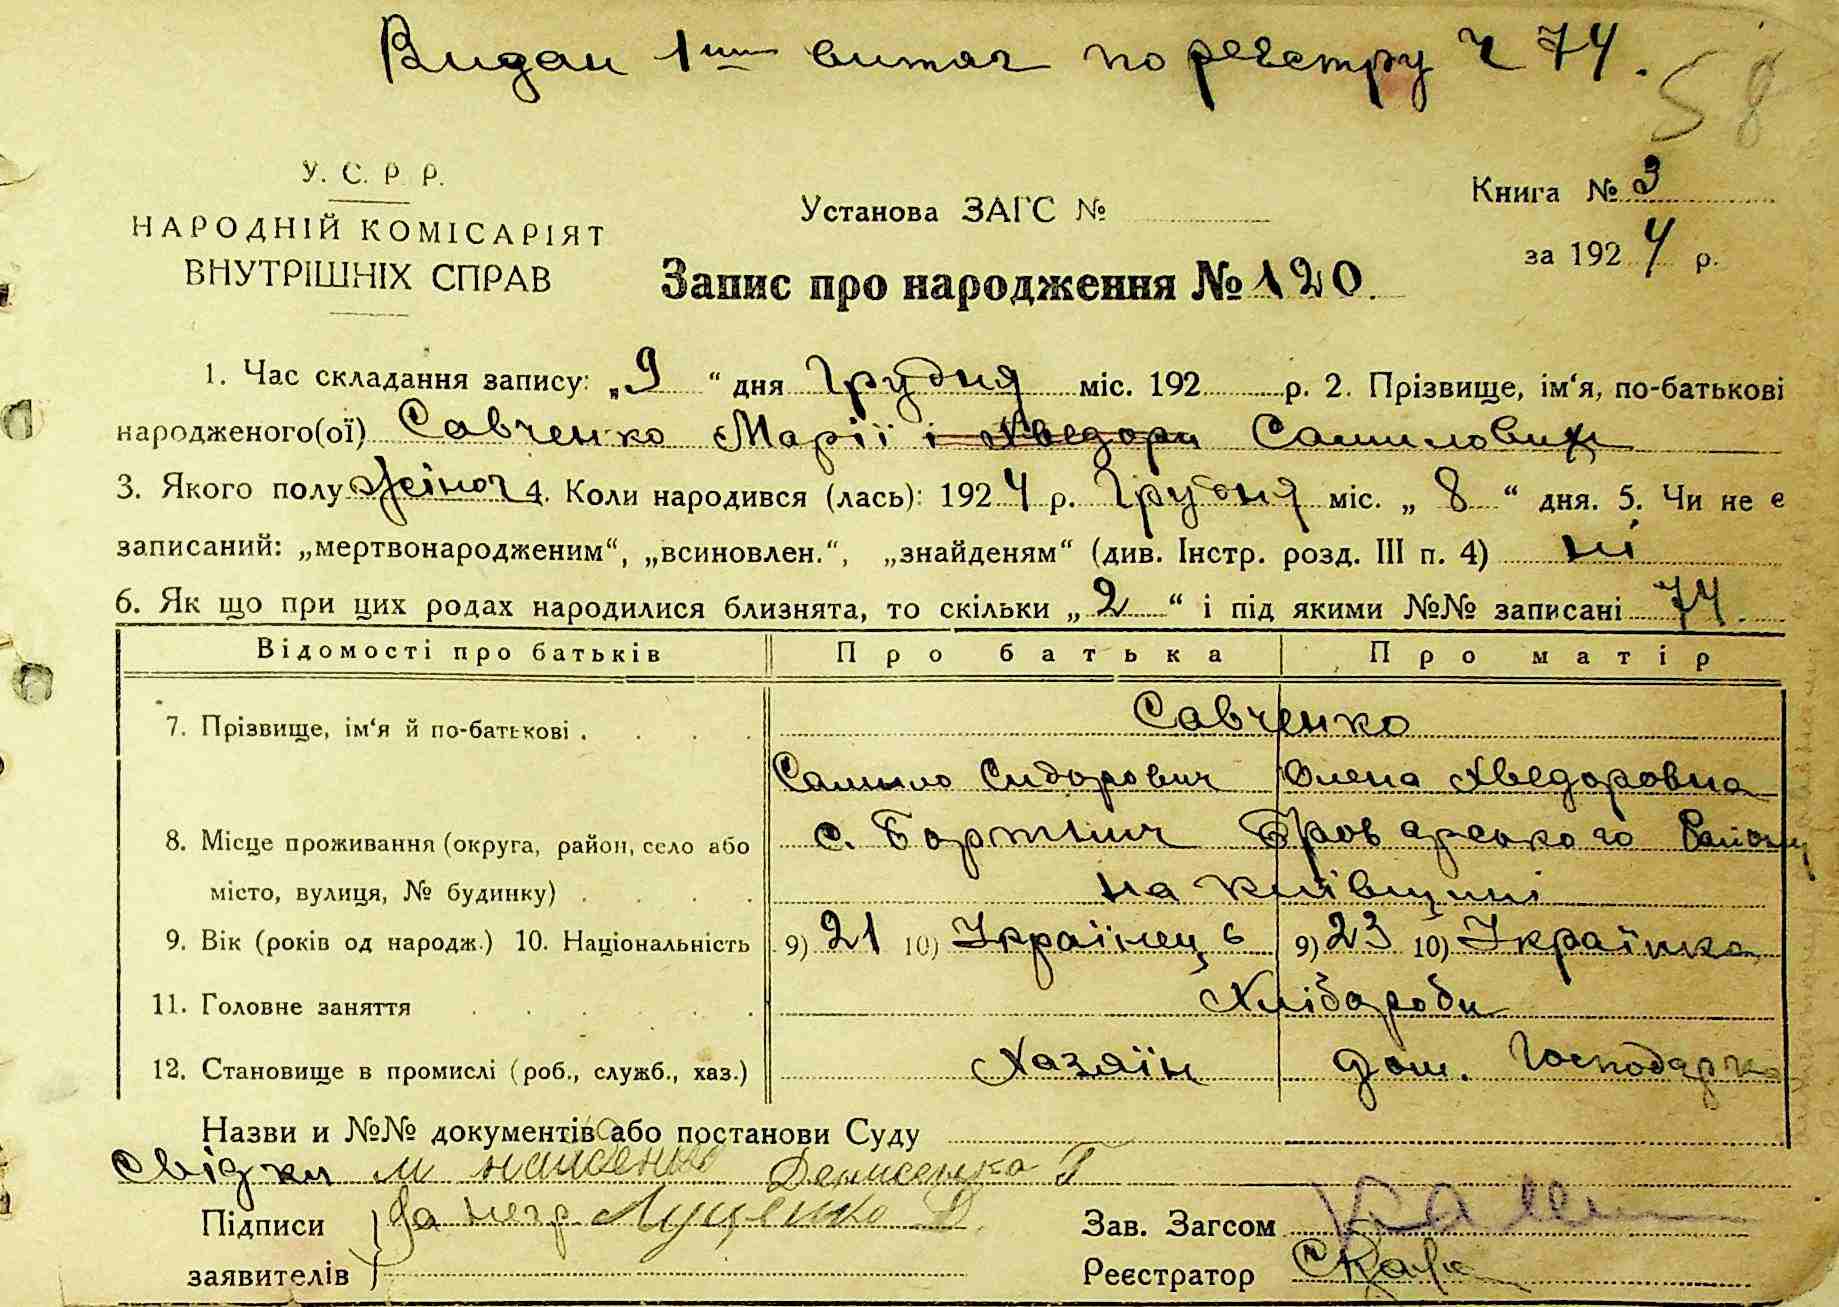 Видан 1ший витяг по реєстру Ч 74.
58
У. С. Р. Р.
НАРОДНІЙ КОМІСАРІЯТ
ВНУТРІШНІХ СПРАВ
Установа ЗАГС №
Книга № 3
за 1924 р.
Запис про народження № 120.
1. Час складання запису: „9“ дня Грудня міс. 192 р. 2. Прізвище, ім‘я, по-батькові
народженого(ої) Савченко Марії і Хведори Самиловни
3. Якого полу жіноч 4. Коли народився (лась): 1924 р. Грудня міс. „8“ дня. 5. Чи не є
записаний: „мертвонародженим“, „всиновлен.“, „знайденям“ (див. Інстр. розд. III п. 4) ні
6. Як що при цих родах народилися близнята, то скільки „2“ і під якими №№ записані 74.
Відомості про батьків Про батька Про матір
7. Прізвище, ім‘я й по-батькові . . . . Савченко
Самило Сидорович Олена Хведоровна
8. Місце проживання (округа, район, село або с. Бортнич Броварського Району
місто, вулиця, № будинку) . . . . на Київщині
9. Вік (років од народж.) 10. Національність 9) 21 10) Українець 9) 23 10) Українка
11. Головне заняття . . . . . . Хлібороби
12. Становище в промислі (роб., служб., хаз.) Хазяїн дом. Господарка
Назви и №№ документів або постанови Суду
Свідки Денисенка Г
Підписи Луценко Д. Зав. Загсом
заявителів Реєстратор